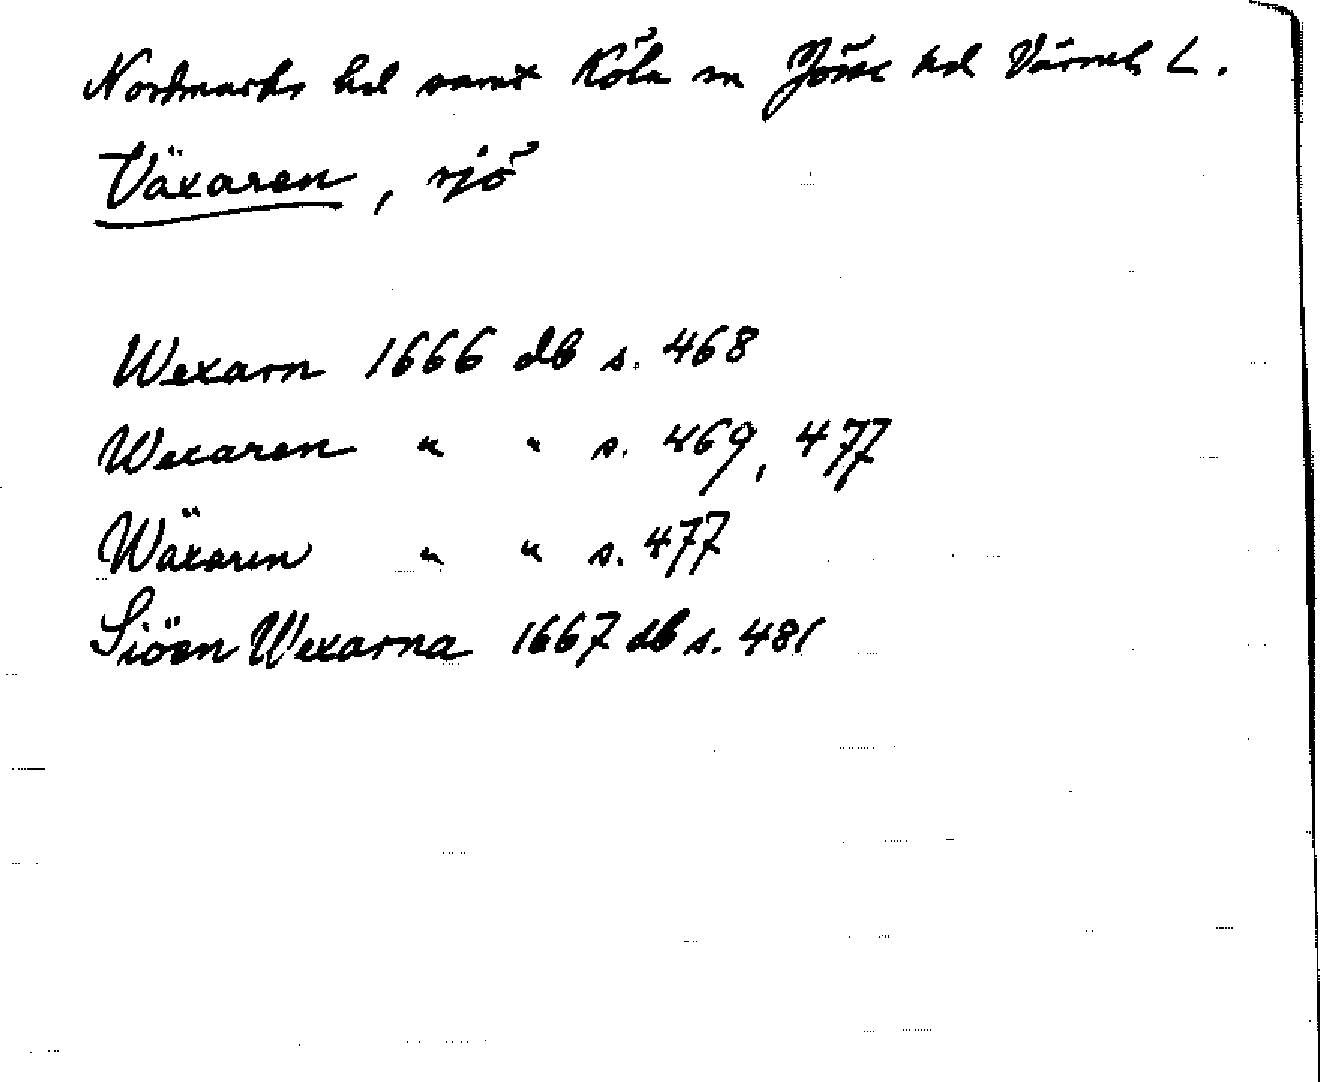 Nordmarks hd samt Köla sn Jösse hd Värml. L.
Växaren, sjö
Wexarn 1666 db s. 468
Wexaren " " s. 469, 477
Wäxaren " " s. 477
Siöen Wexarna 1667 db s. 481